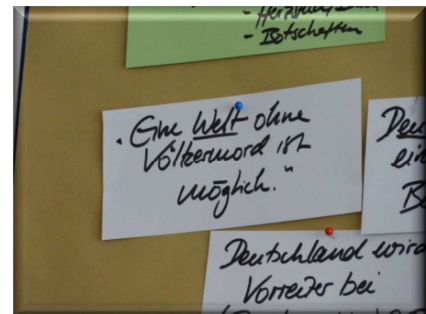 - Botschaften
„Eine Welt ohne
Völkermord ist
möglich."
Deu
ein
B
Deutschland wird
Vorreiter bei